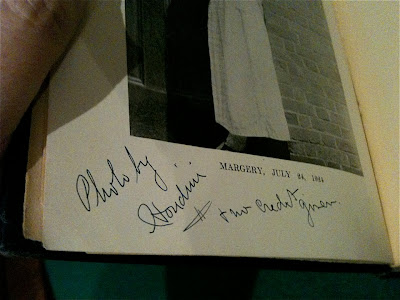 MARGERY, JULY 24, 1924
Photo by
Houdini
& no credit given.